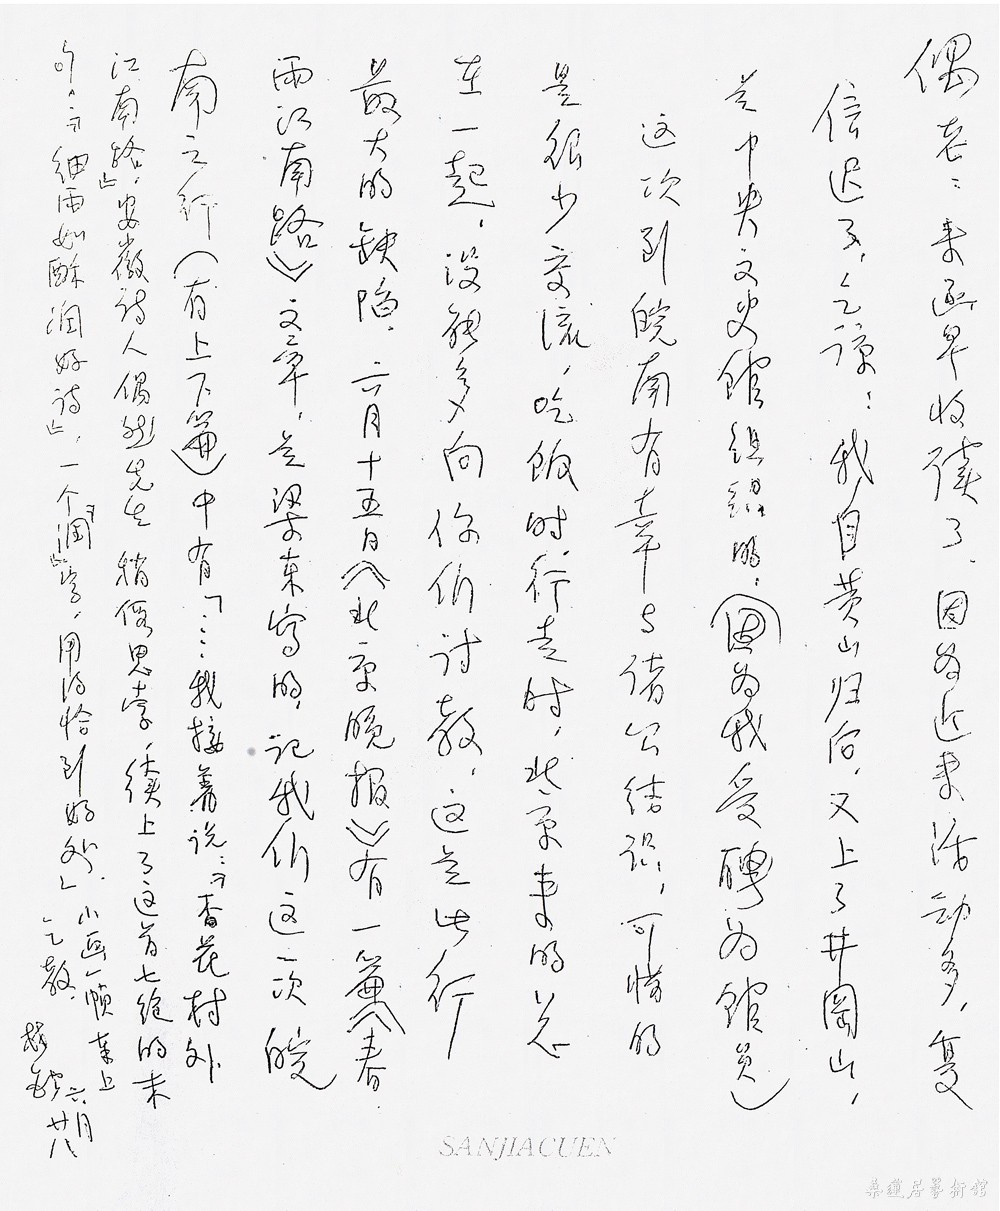 偶老：来函早收读了，因为近来活动多，复
信迟了，乞谅！我自黄山归后，又上了井岡山，
是中央文史館组织的，（因为我受聘为館员）
这次到皖南有幸与诸公结识，可惜的
是很少交流，吃饭时，行走时，北京来的总
在一起，没能多向你们讨教，这是此行
最大的缺陷。六月十五日《北京晚报》有一篇《春
雨江南路》文章，是梁东写的，记我们这一次皖
南之行（有上下篇）中有「……我接着说：“杏花村外
江南路”，安徽诗人偶然先生稍假思索，续上了这首七绝的末
句：“细雨如酥润好诗”，一个“润”字，用得恰到好处」。
小画一幀奉上
乞教。
六月
廿八
SANJIACUEN